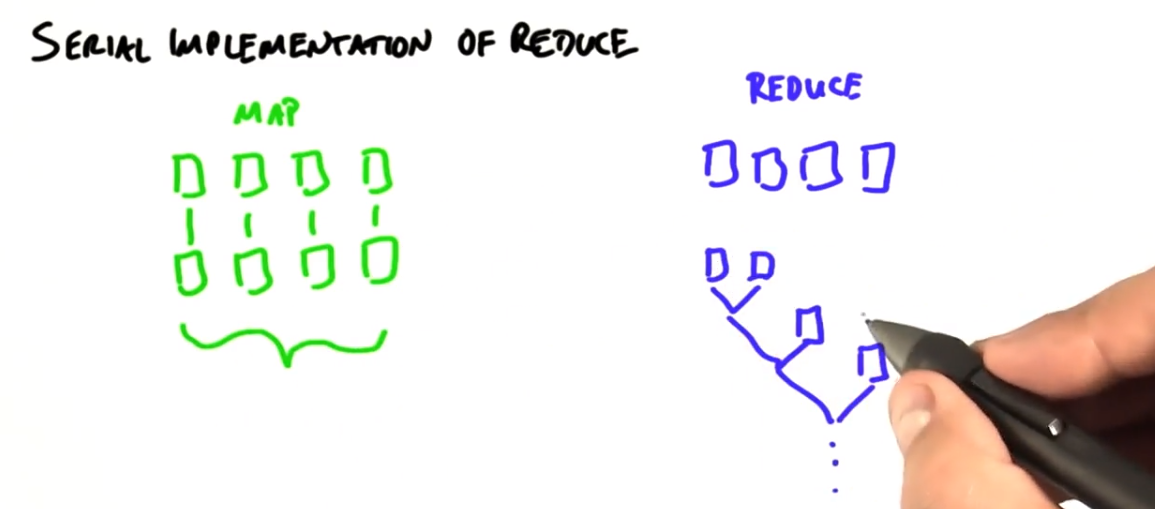 SERIAL IMPLEMENTATION OF REDUCE
MAP
REDUCE